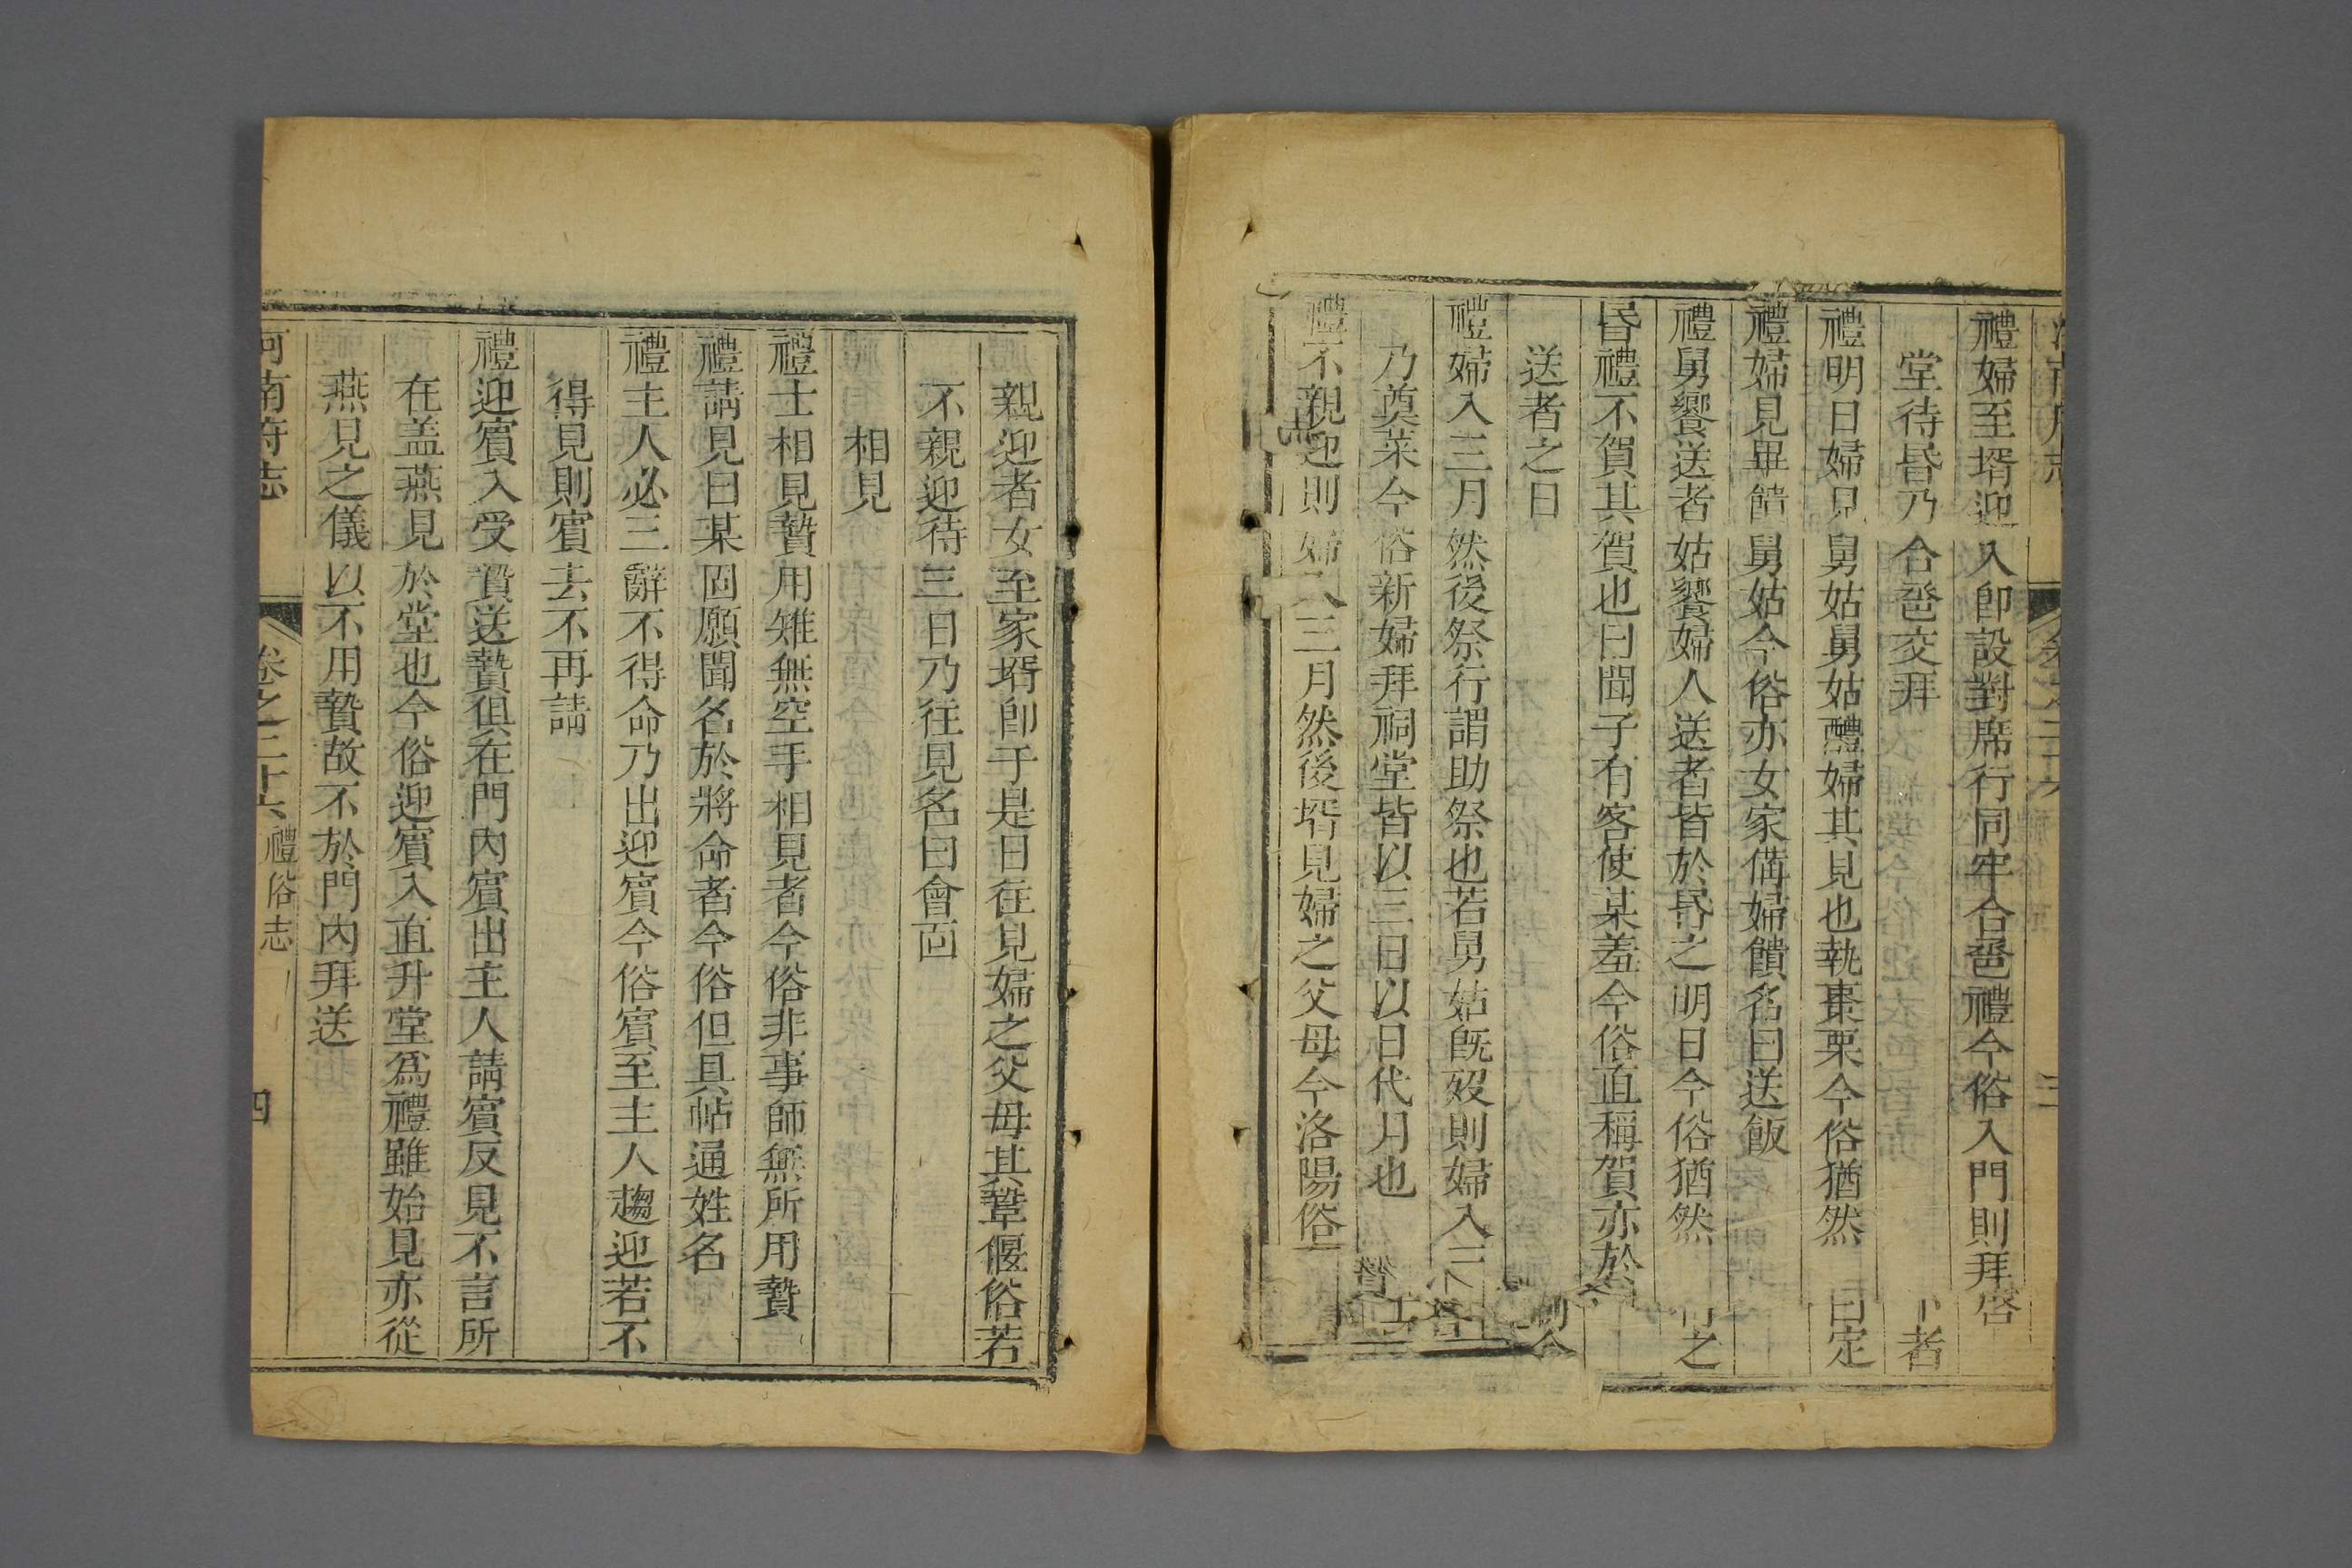 禮婦至壻迎入卽設對席行同牢合巹禮今俗入門則拜
堂待昏乃合巹交拜
禮明日婦見舅姑舅姑醴婦其見也執棗栗今俗猶然
禮婦見畢饋舅姑今俗亦女家備婦饋名曰送飯
禮舅饗送者姑饗婦人送者皆於昏之明日今俗猶然
昏禮不賀其賀也曰聞子有客使某羞今俗直稱賀亦於
送者之日
禮婦入三月然後祭行謂助祭也若舅姑旣歿則婦入三
乃奠菜今俗新婦拜祠堂皆以三日以日代月也
禮不親迎則婦入三月然後壻見婦之父母今洛陽俗
親迎者女至家壻卽于是日往見婦之父母其鞏偃俗若
不親迎待三日乃往見名曰會面
相見
禮士相見贄用雉無空手相見者今俗非事師無所用贄
禮請見曰某固願聞名於將命者今俗但具帖通姓名
禮主人必三辭不得命乃出迎賓今俗賓至主人趨迎若不
得見則賓去不再請
禮迎賓入受贄送贄俱在門內賓出主人請賓反見不言所
在盖燕見於堂也今俗迎賓入直升堂爲禮雖始見亦從
燕見之儀以不用贄故不於門內拜送
河南府志 卷之二十六 禮俗志 四